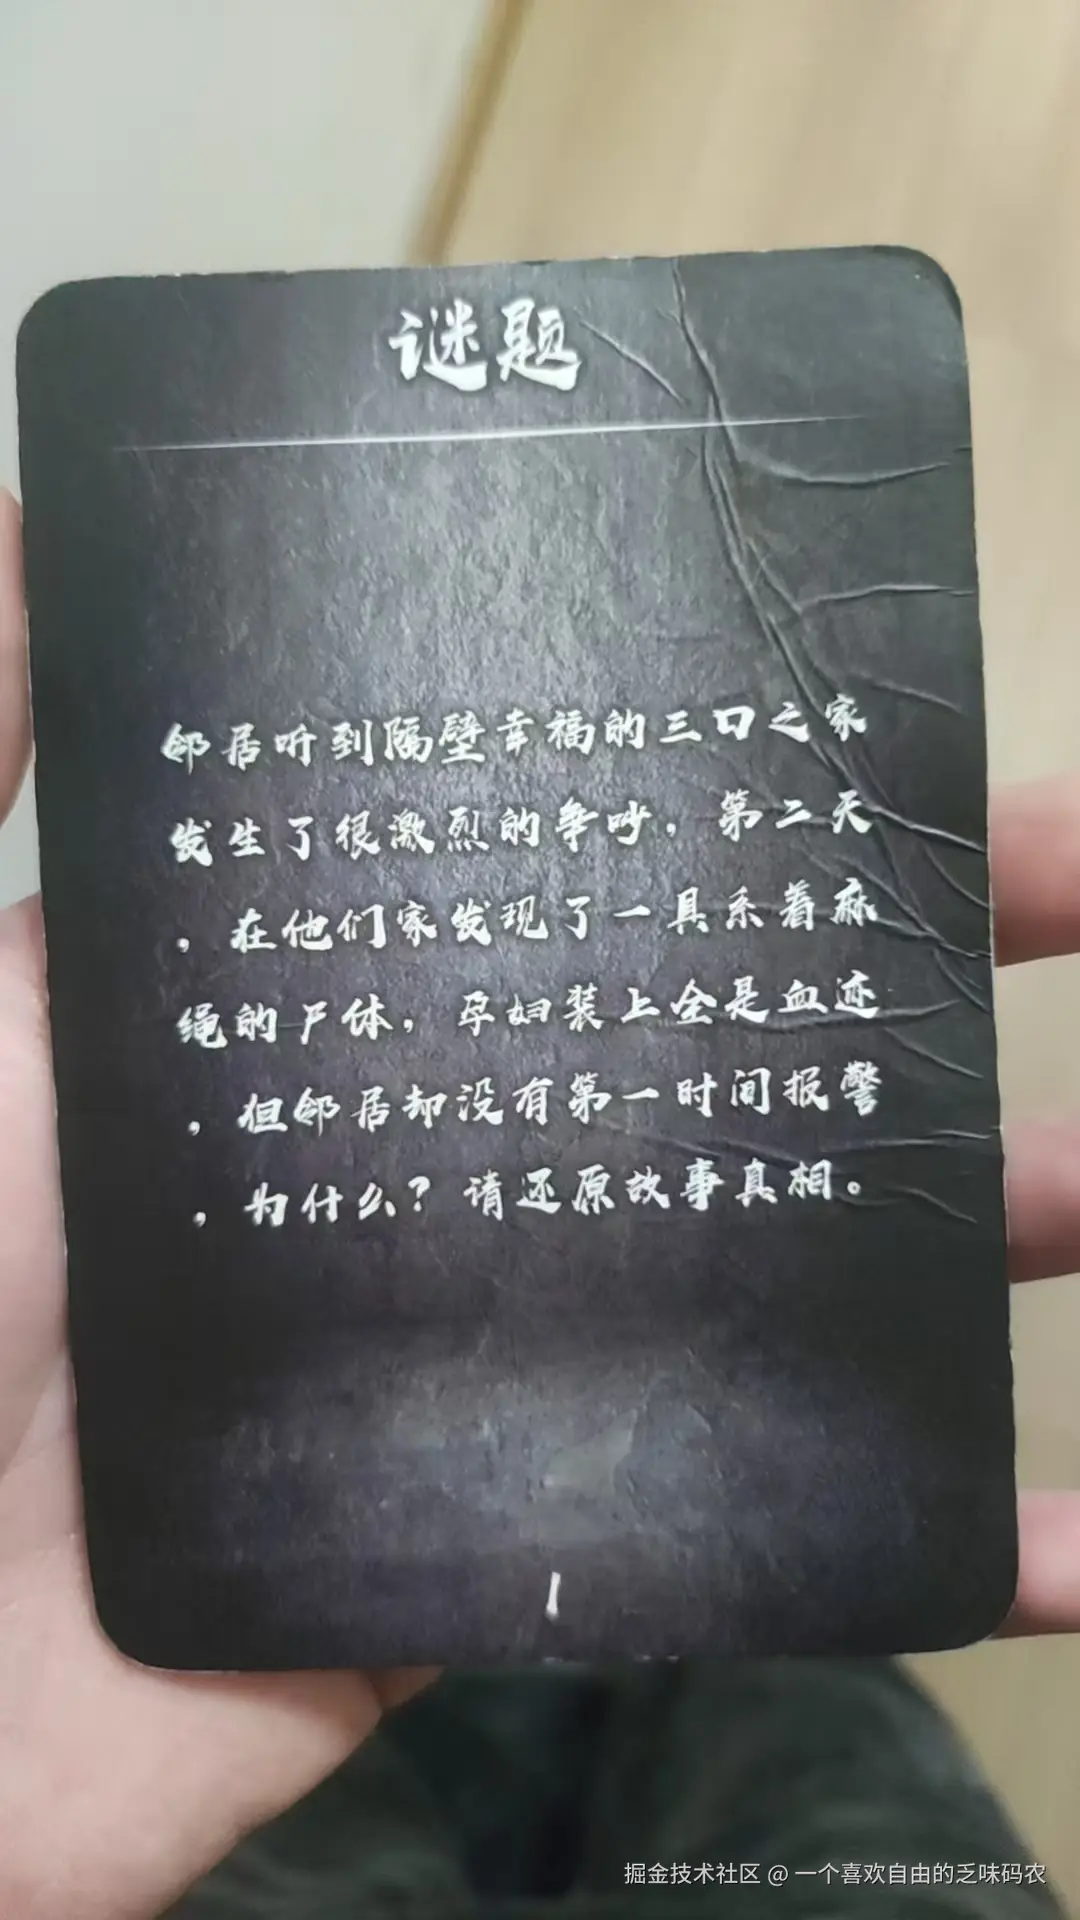 谜题
邻居听到隔壁幸福的三口之家
发生了很激烈的争吵，第二天
，在他们家发现了一具系着麻
绳的尸体，孕妇装上全是血迹
，但邻居却没有第一时间报警
，为什么？请还原故事真相。
1
掘金技术社区 @ 一个喜欢自由的乏味码农